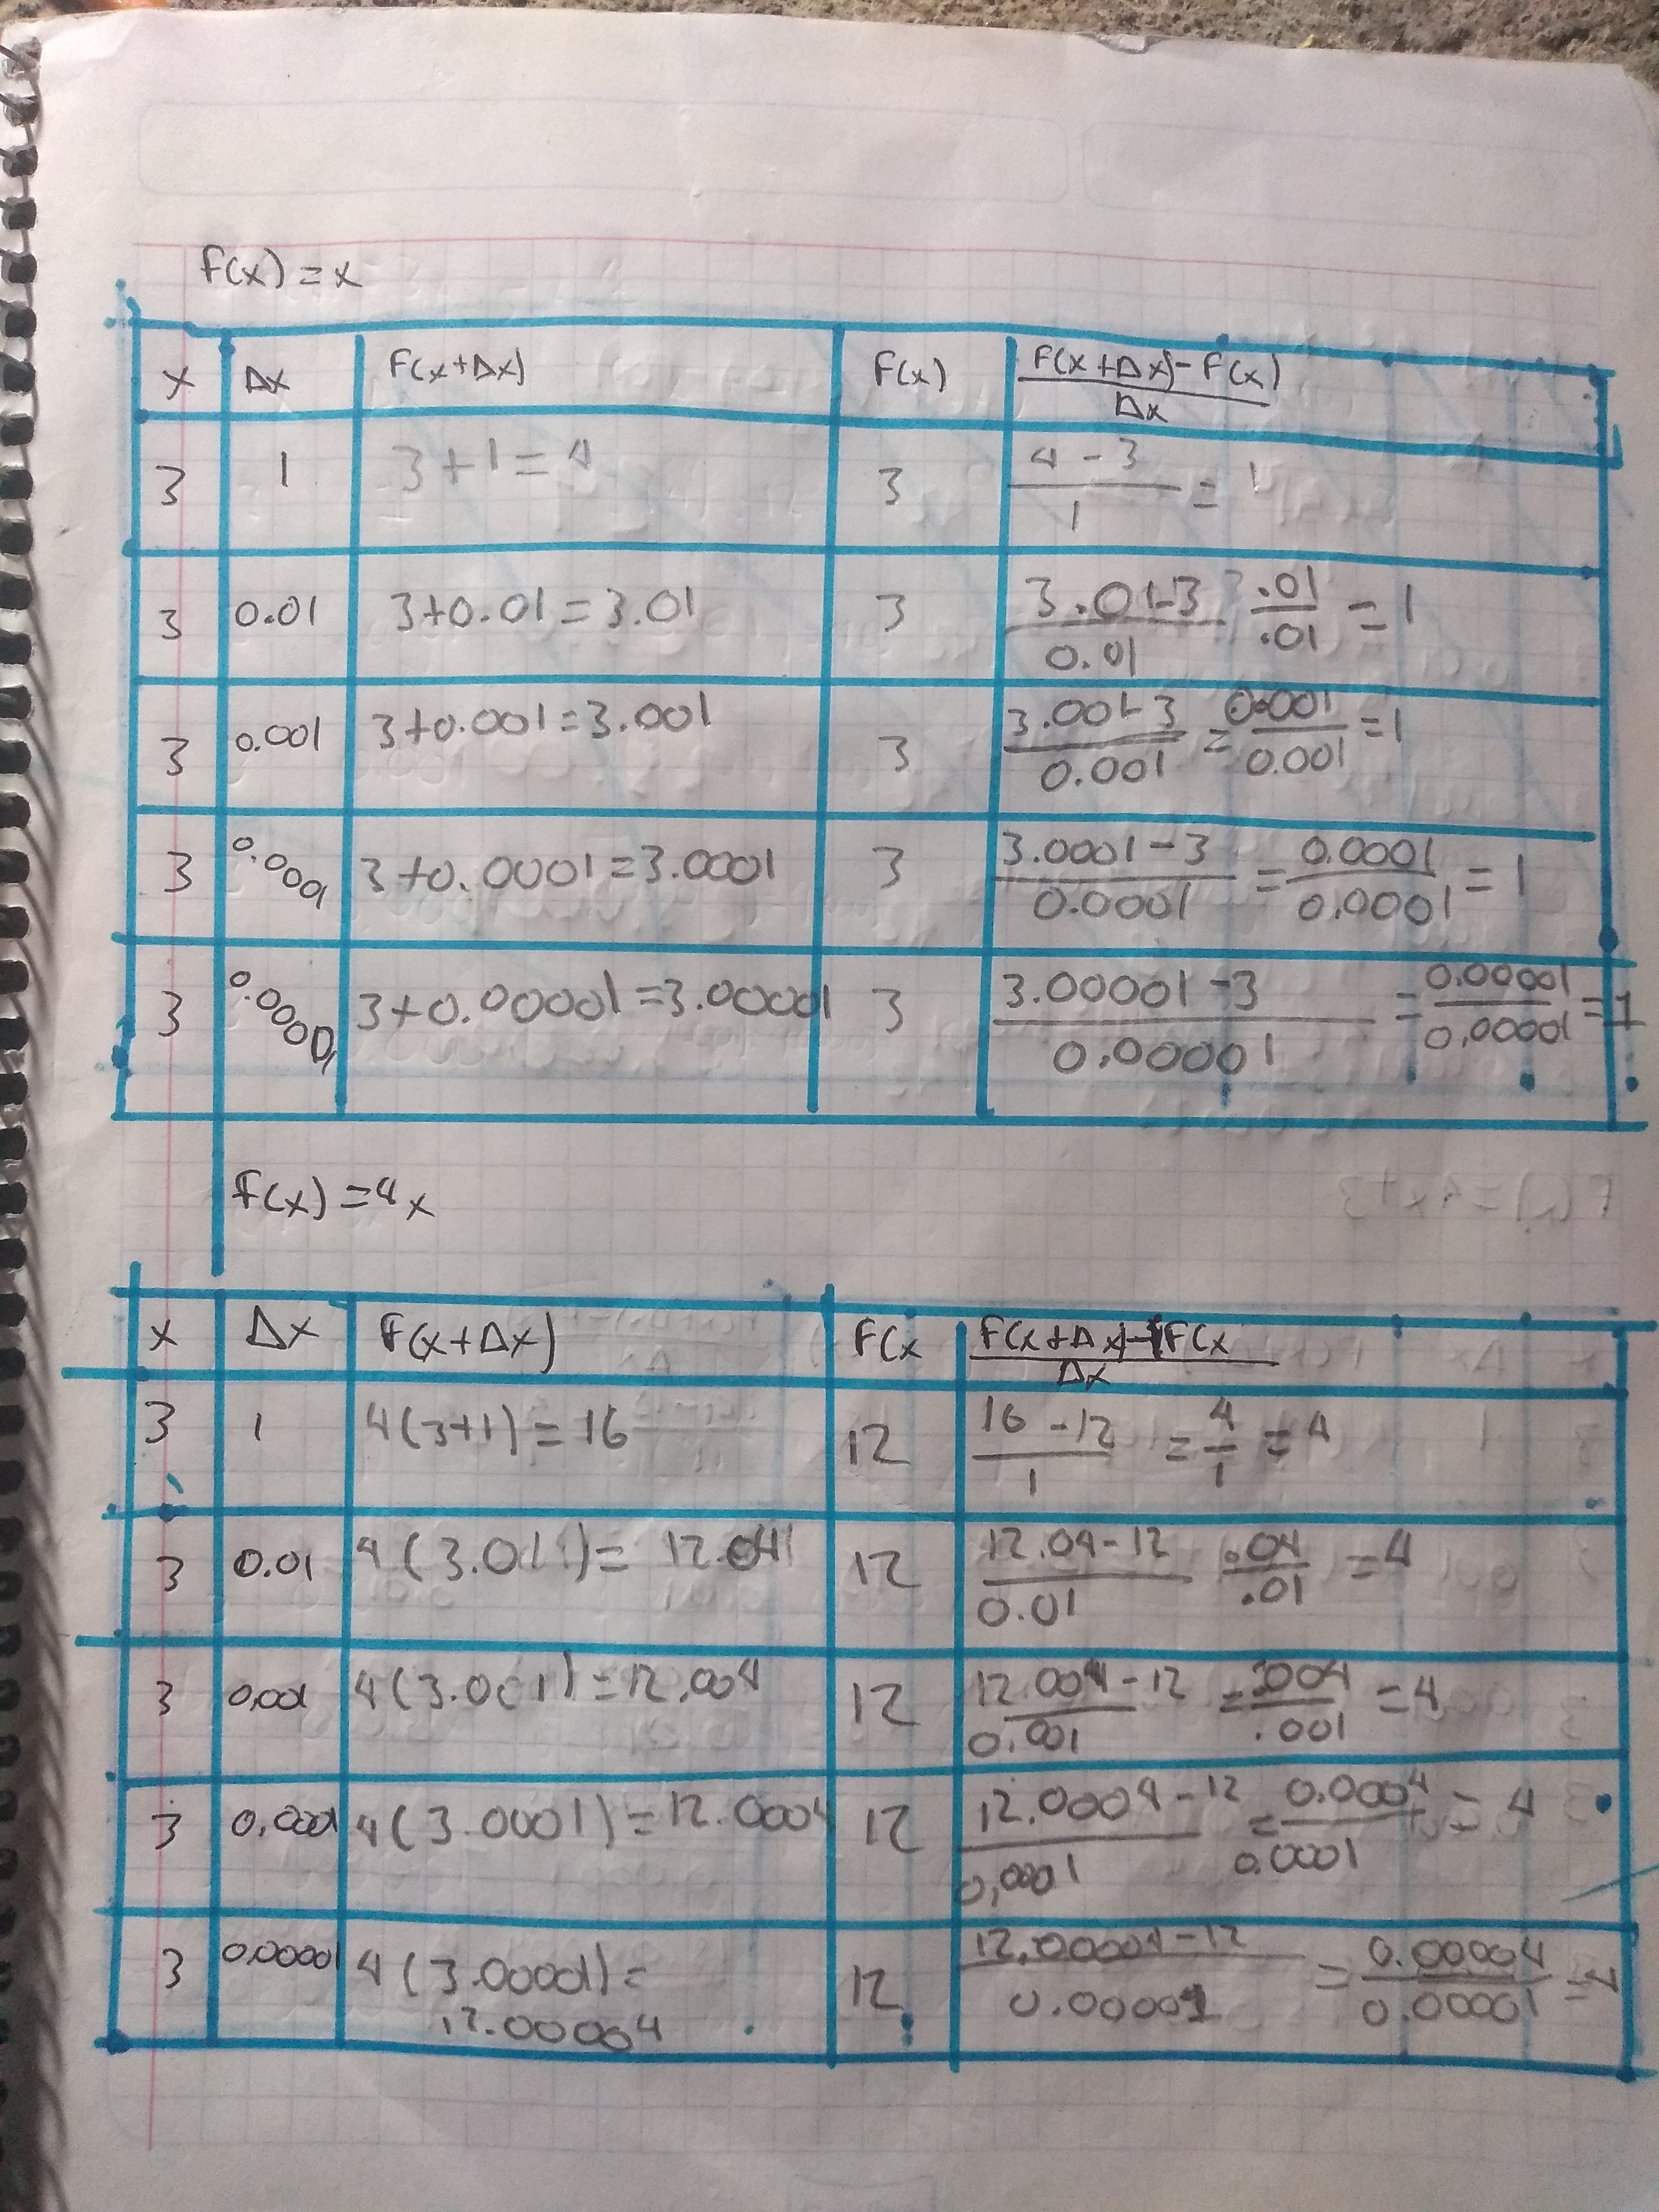 F(x) = x
x Δx F(x+Δx) F(x) F(x+Δx)-F(x) / Δx
3 1 3+1=4 3 4-3 / 1 = 1
3 0.01 3+0.01=3.01 3 3.01-3 / 0.01 .01 / .01 = 1
3 0.001 3+0.001=3.001 3 3.001-3 / 0.001 = 0.001 / 0.001 = 1
3 0.0001 3+0.0001=3.0001 3 3.0001-3 / 0.0001 = 0.0001 / 0.0001 = 1
3 0.00001 3+0.00001=3.00001 3 3.00001-3 / 0.00001 = 0.00001 / 0.00001 = 1
F(x) = 4x
x Δx F(x+Δx) F(x F(x+Δx)-F(x / Δx
3 1 4(3+1)=16 12 16-12 / 1 = 4 / 1 = 4
3 0.01 4(3.01)= 12.04 12 12.04-12 / 0.01 .04 / .01 = 4
3 0.001 4(3.001)=12.004 12 12.004-12 / 0.001 = .004 / .001 = 4
3 0.0001 4(3.0001)=12.0004 12 12.0004-12 / 0,0001 = 0.0004 / 0.0001 = 4
3 0.00001 4(3.00001)= 12 12.00004-12 / 0.00001 = 0.00004 / 0.00001 = 4
12.00004